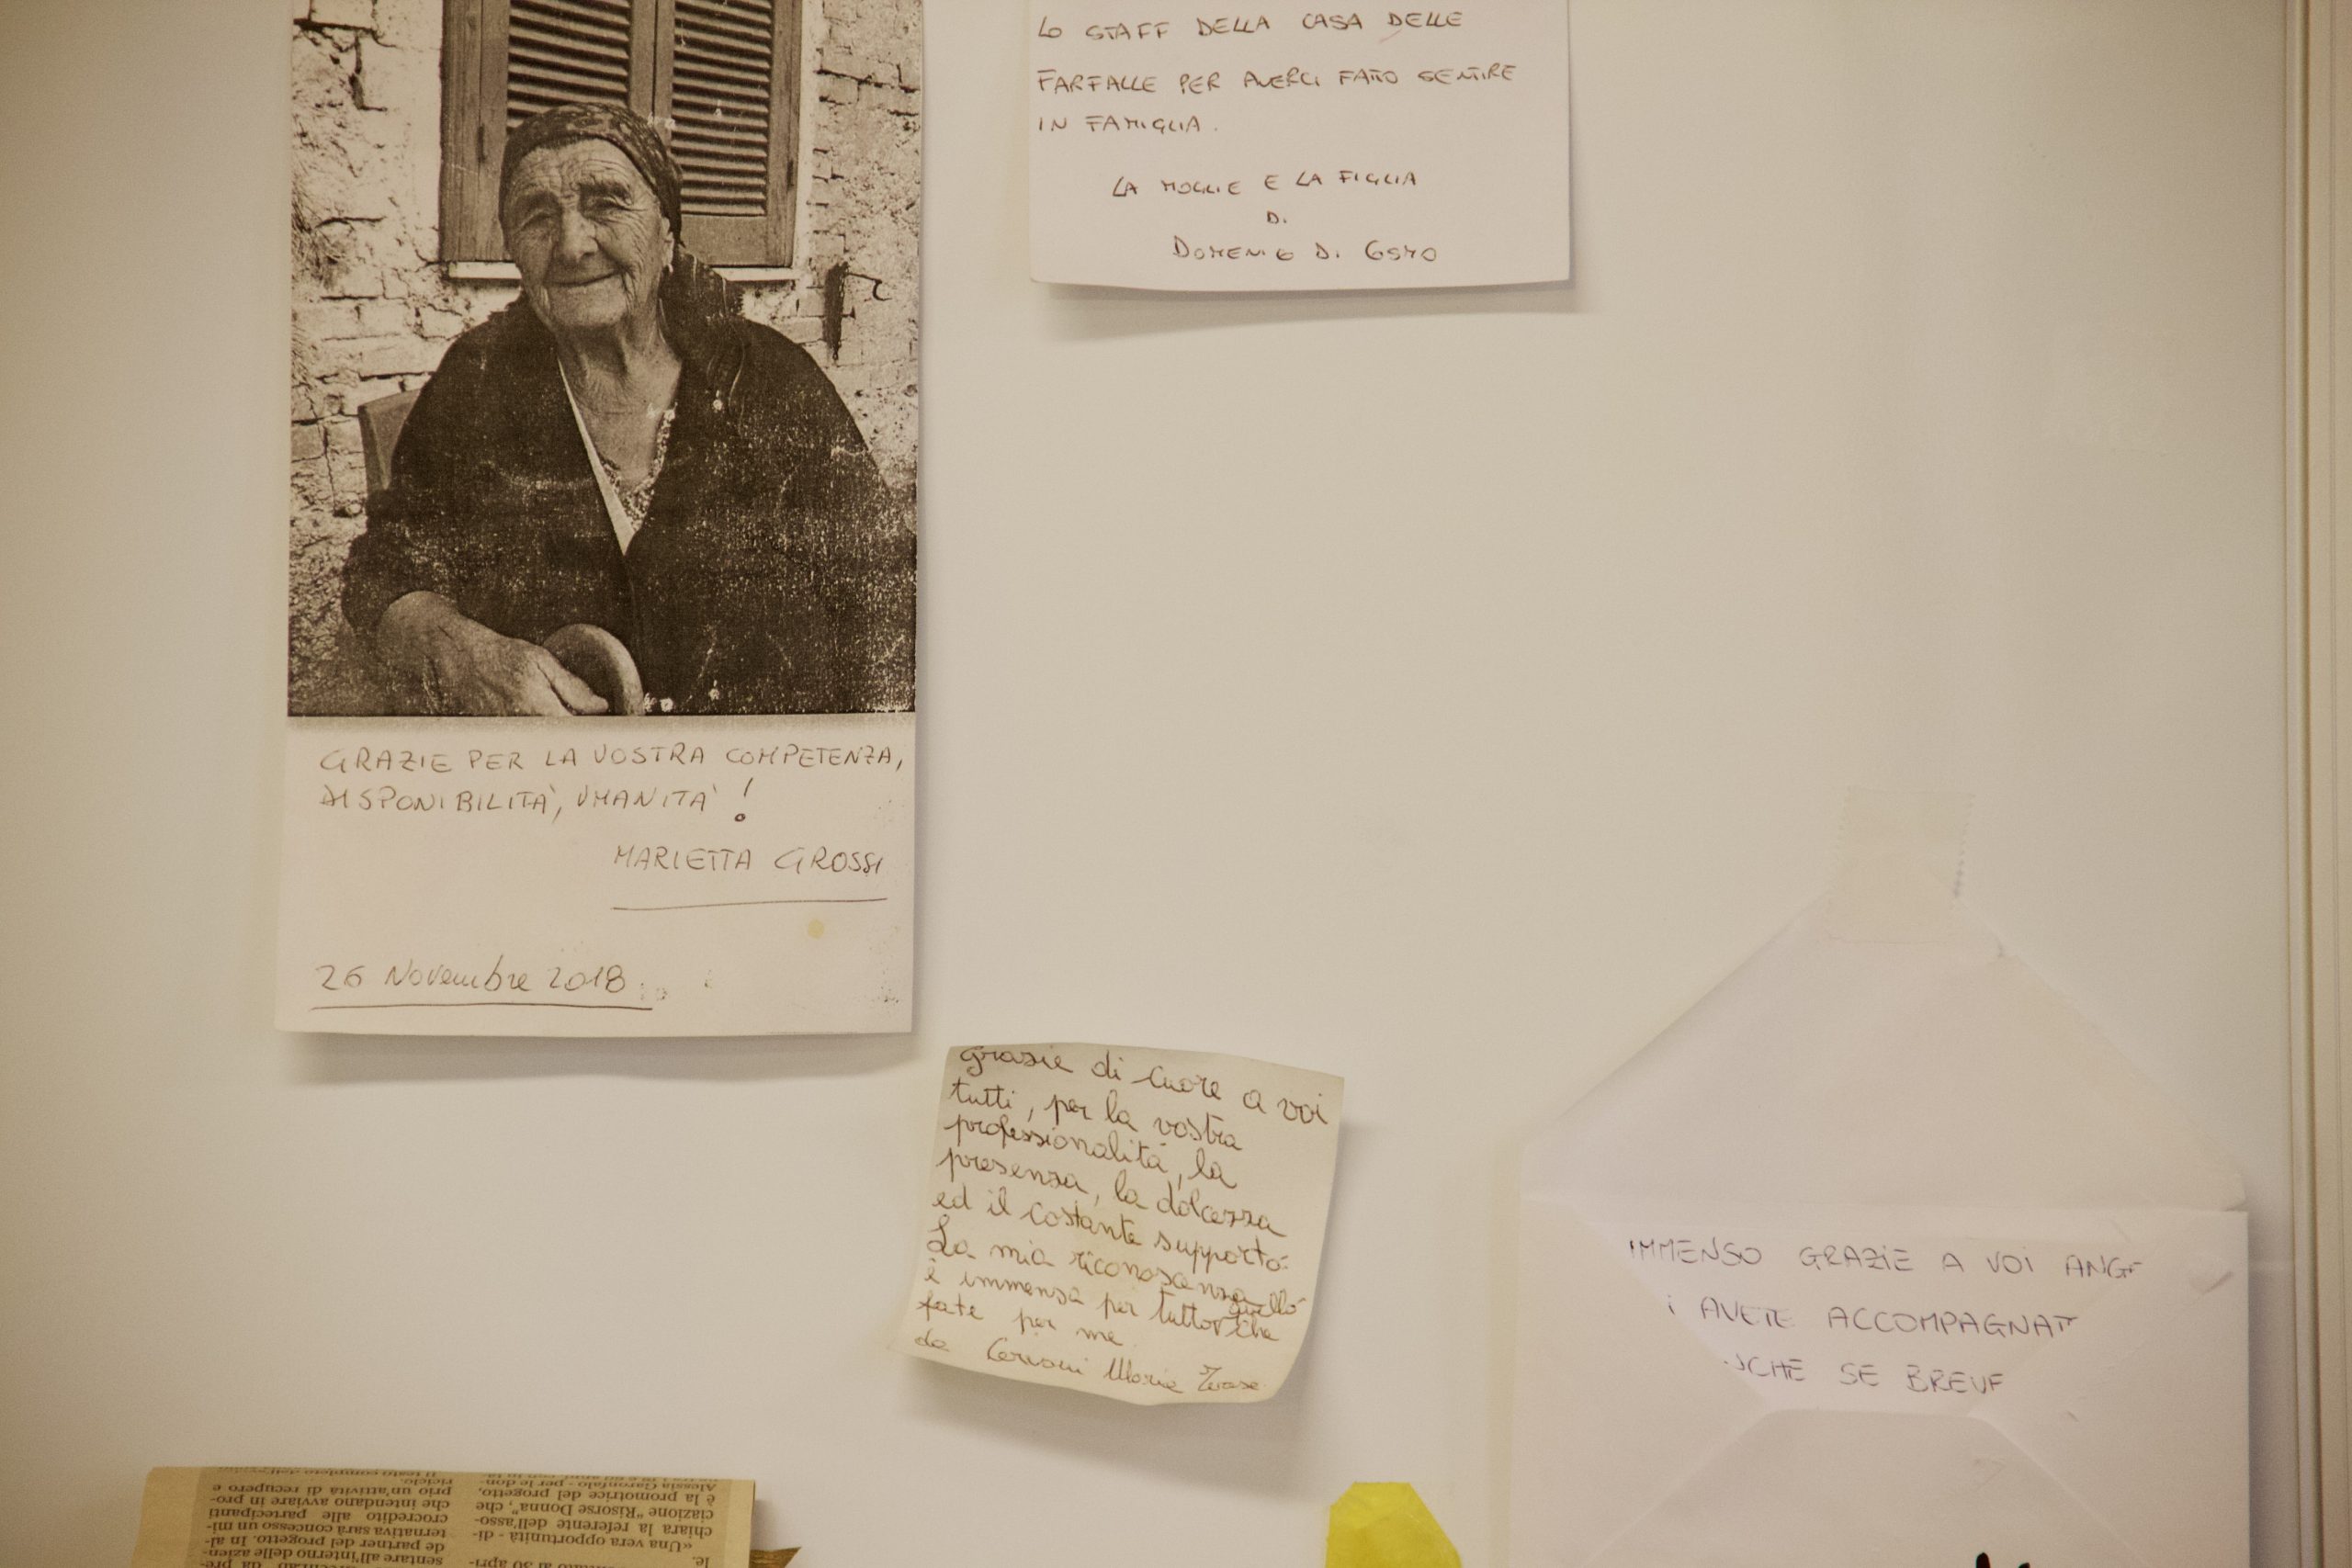 LO STAFF DELLA CASA DELLE
FARFALLE PER AVERCI FATTO SENTIRE
IN FAMIGLIA.
LA MOGLIE E LA FIGLIA
DI
DOMENICO DI COSMO
GRAZIE PER LA VOSTRA COMPETENZA,
DISPONIBILITA', UMANITA' !
MARIETTA GROSSI
26 Novembre 2018
grazie di cuore a voi
tutti, per la vostra
professionalità, la
presenza, la dolcezza
ed il costante supporto.
La mia riconoscenza
è immensa per tutto quello che
fate per me
da Maria
IMMENSO GRAZIE A VOI ANGE
I AVETE ACCOMPAGNAT
NCHE SE BREVE
Il testo completo dell'avviso
riciclo.
prio un'attività di recupero e
che intendano avviare in pro-
crocredito alle partecipanti
ternativa sarà concesso un mi-
de partner del progetto. In al-
sentare all'interno delle azien-
da pre-
Alessia Garonfalo - per le don-
è la promotrice del progetto,
ciazione "Risorse Donna", che
chiara la referente dell'asso-
«Una vera opportunità - di-
le.
al 30 apri-